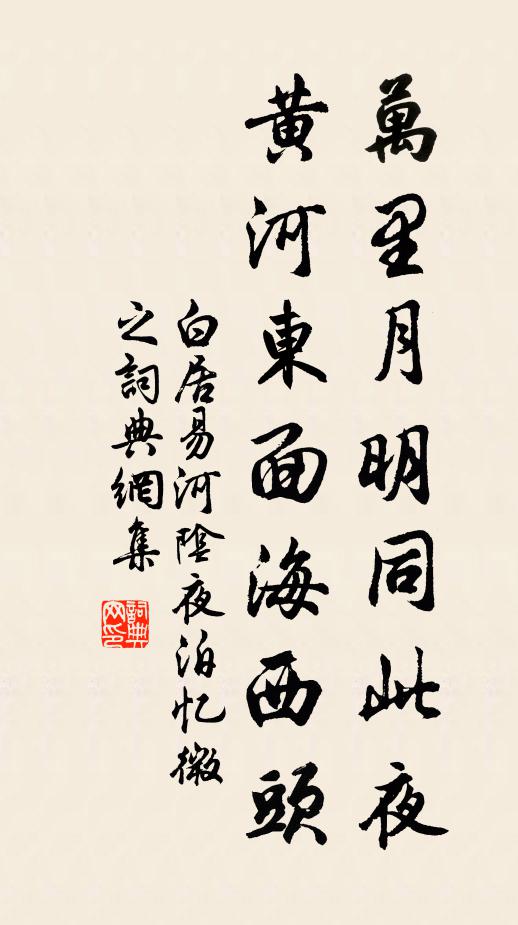 萬里月明同此夜
黃河東面海西頭
白居易河陰夜泊忆微
之詞典網集
詞典网印